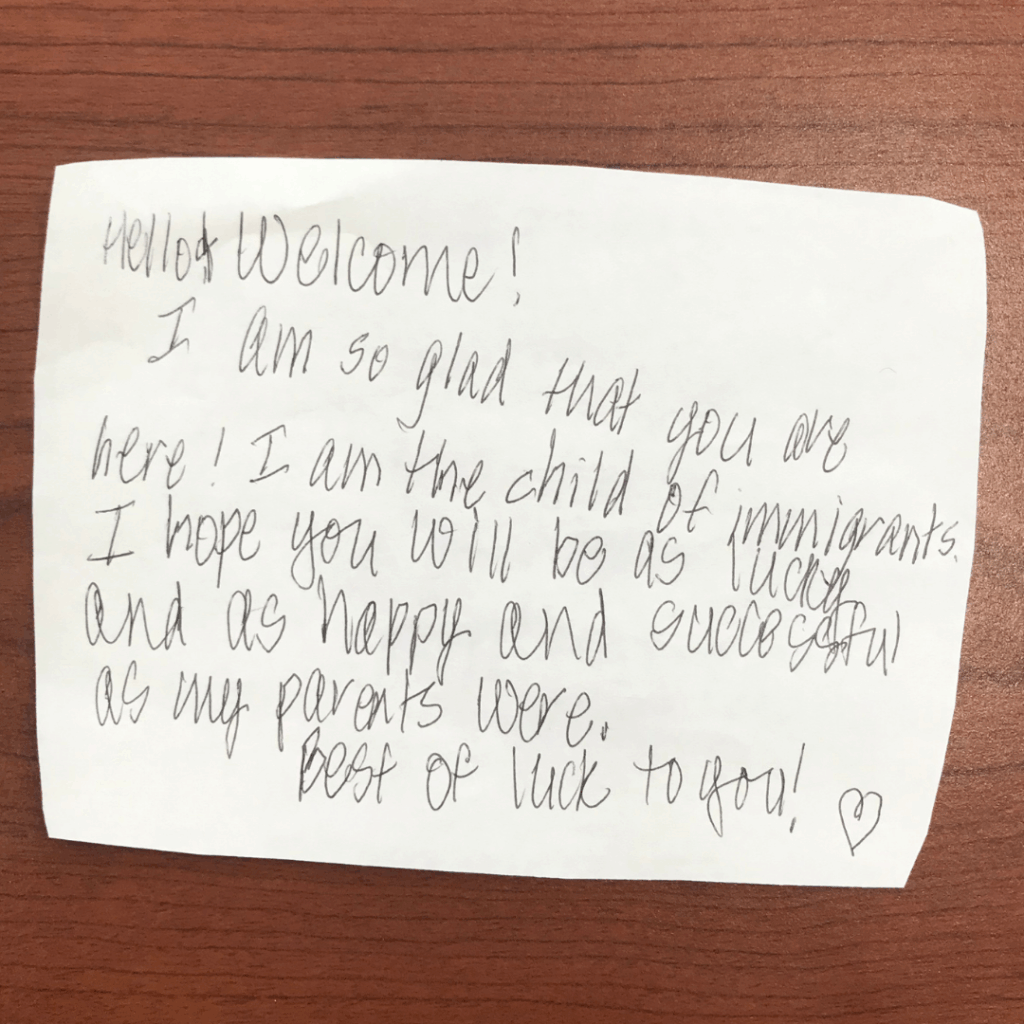 Hello & Welcome!
I am so glad that you are
here! I am the child of immigrants.
I hope you will be as lucky
and as happy and successful
as my parents were.
Best of luck to you! ♡